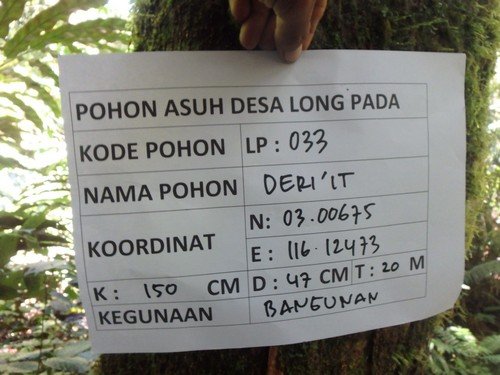 POHON ASUH DESA LONG PADA
KODE POHON LP : 033
NAMA POHON DERI'IT
KOORDINAT N: 03.00675
E : 116.12473
K : 150 CM D : 47 CM T : 20 M
KEGUNAAN BANGUNAN